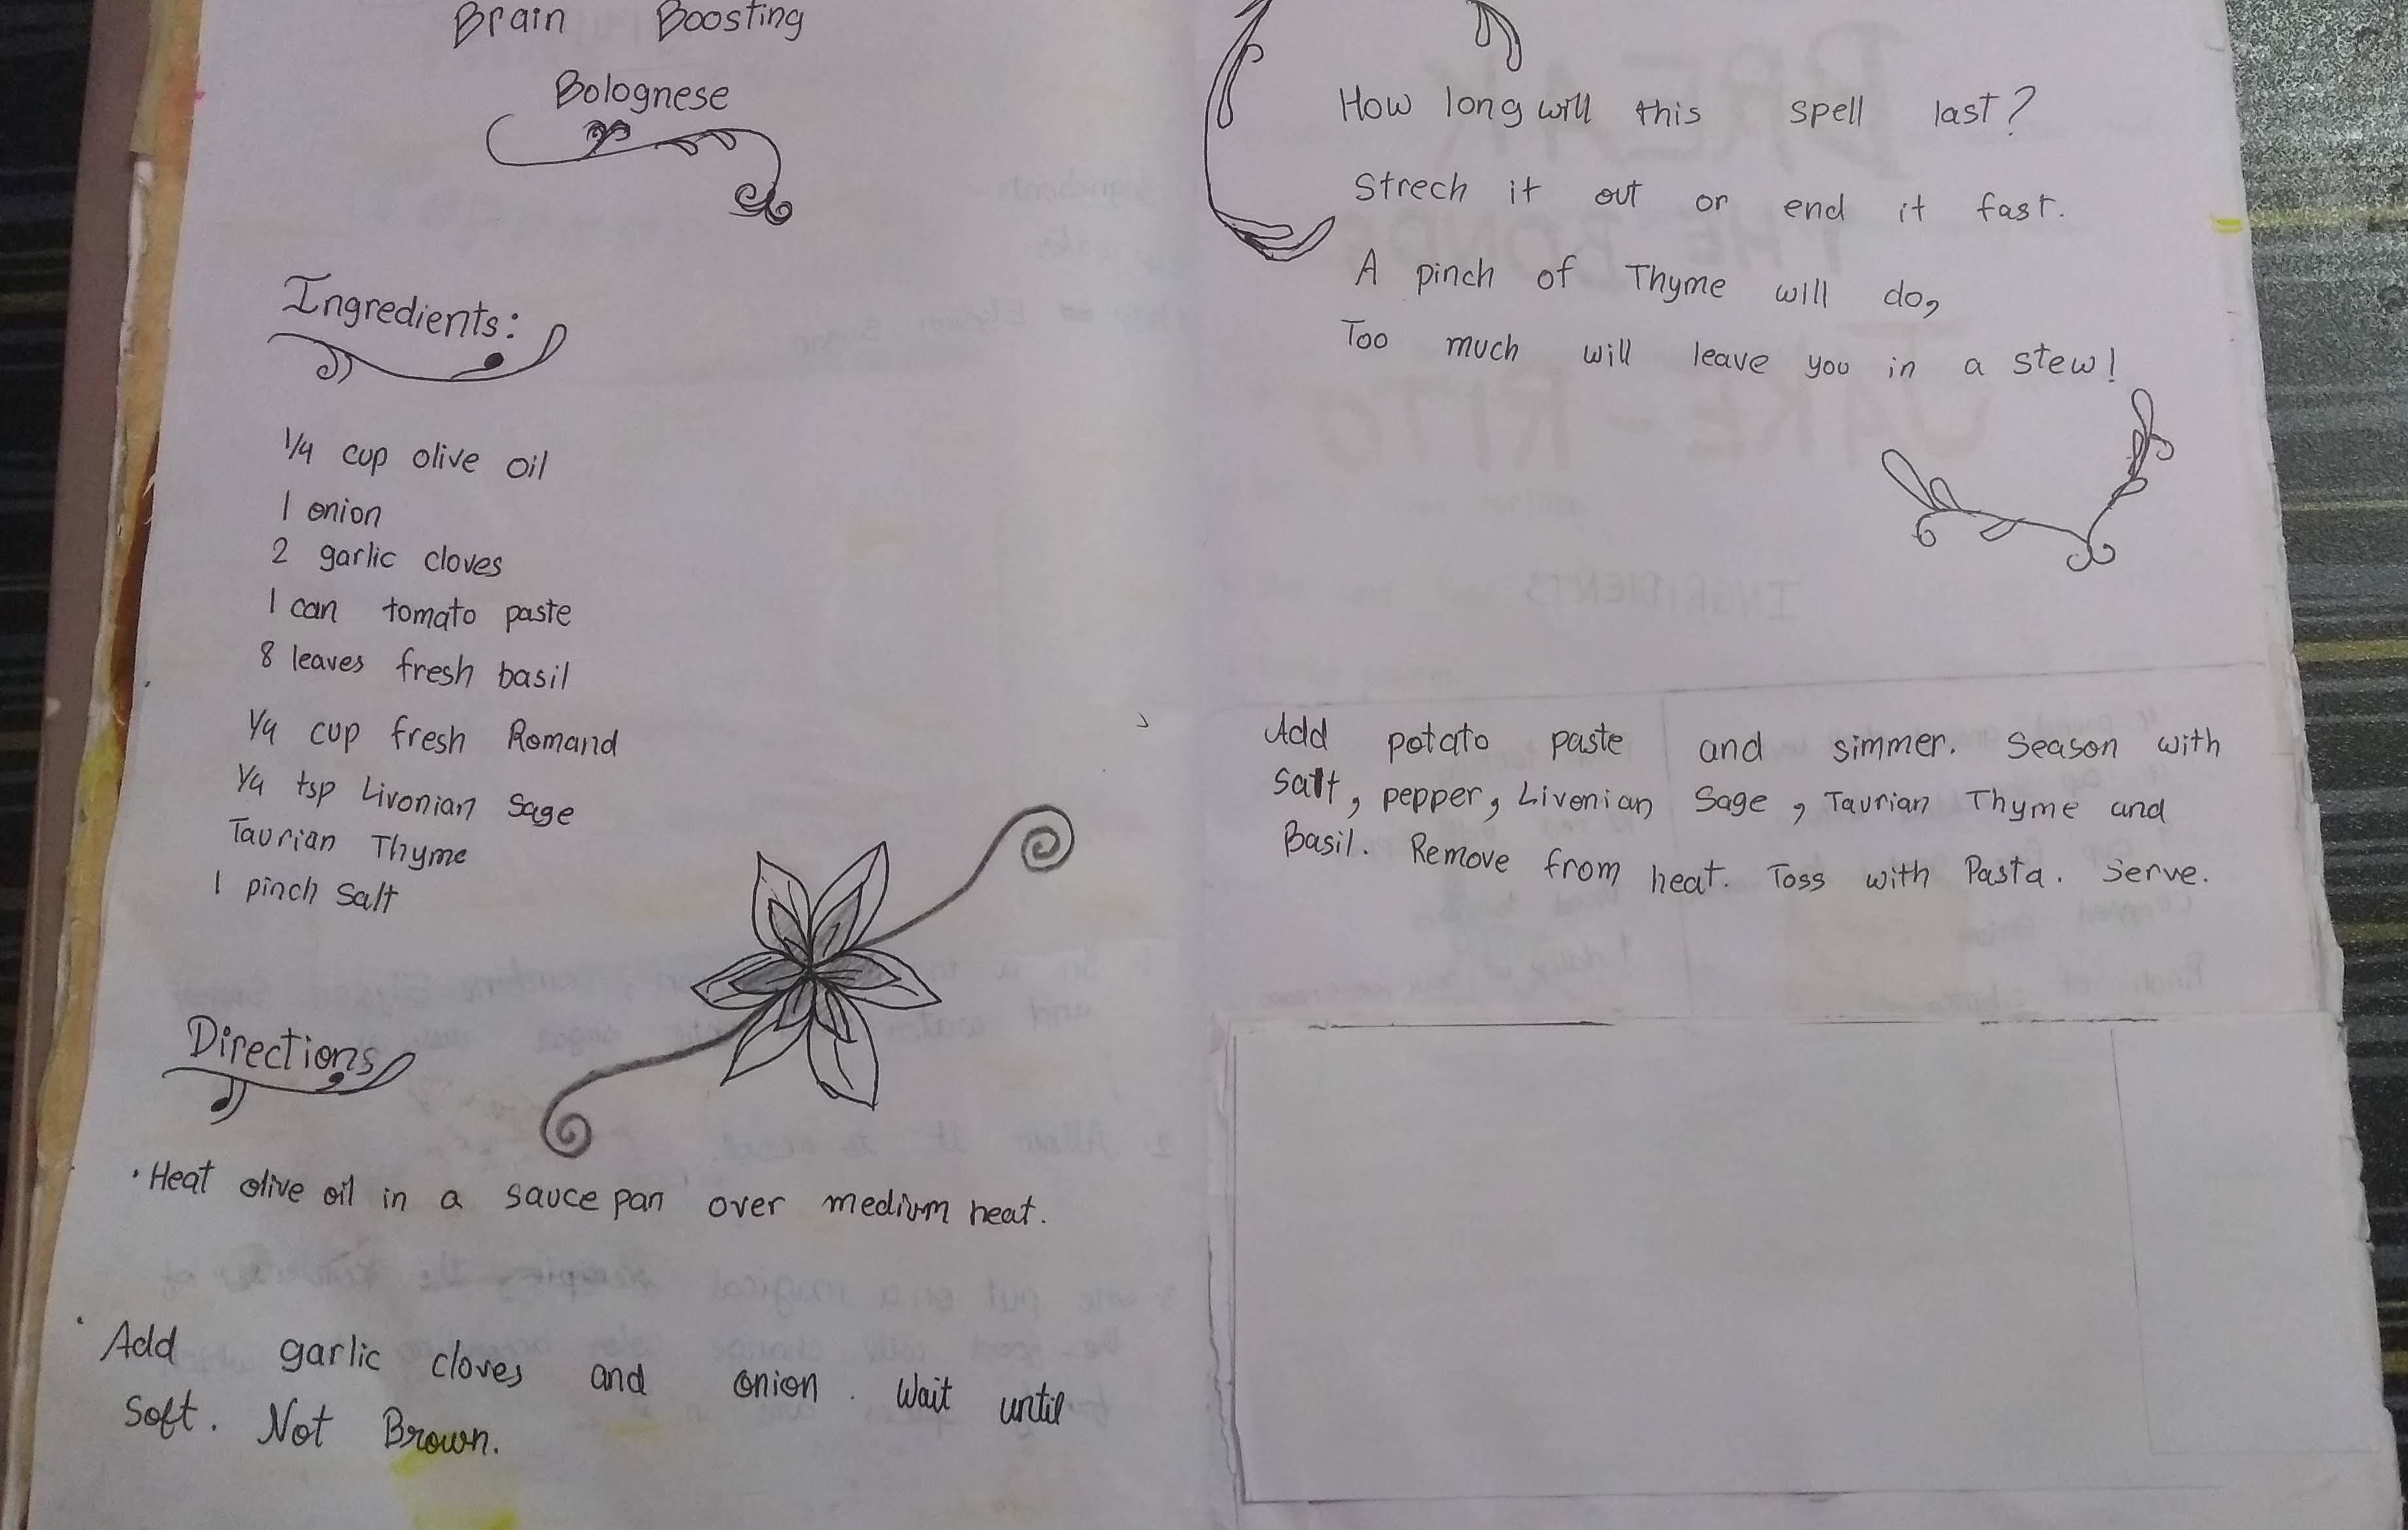 Brain Boosting
Bolognese
Ingredients:
1/4 cup olive oil
1 onion
2 garlic cloves
1 can tomato paste
8 leaves fresh basil
1/4 cup fresh Romand
1/4 tsp Livonian Sage
Taurian Thyme
1 pinch Salt
Directions
• Heat olive oil in a sauce pan over medium heat.
• Add garlic cloves and onion. Wait until
Soft. Not Brown.
How long will this spell last?
Strech it out or end it fast.
A pinch of Thyme will do,
Too much will leave you in a stew!
Add potato paste and simmer. Season with
Salt, pepper, Livonian Sage, Taurian Thyme and
Basil. Remove from heat. Toss with Pasta. Serve.